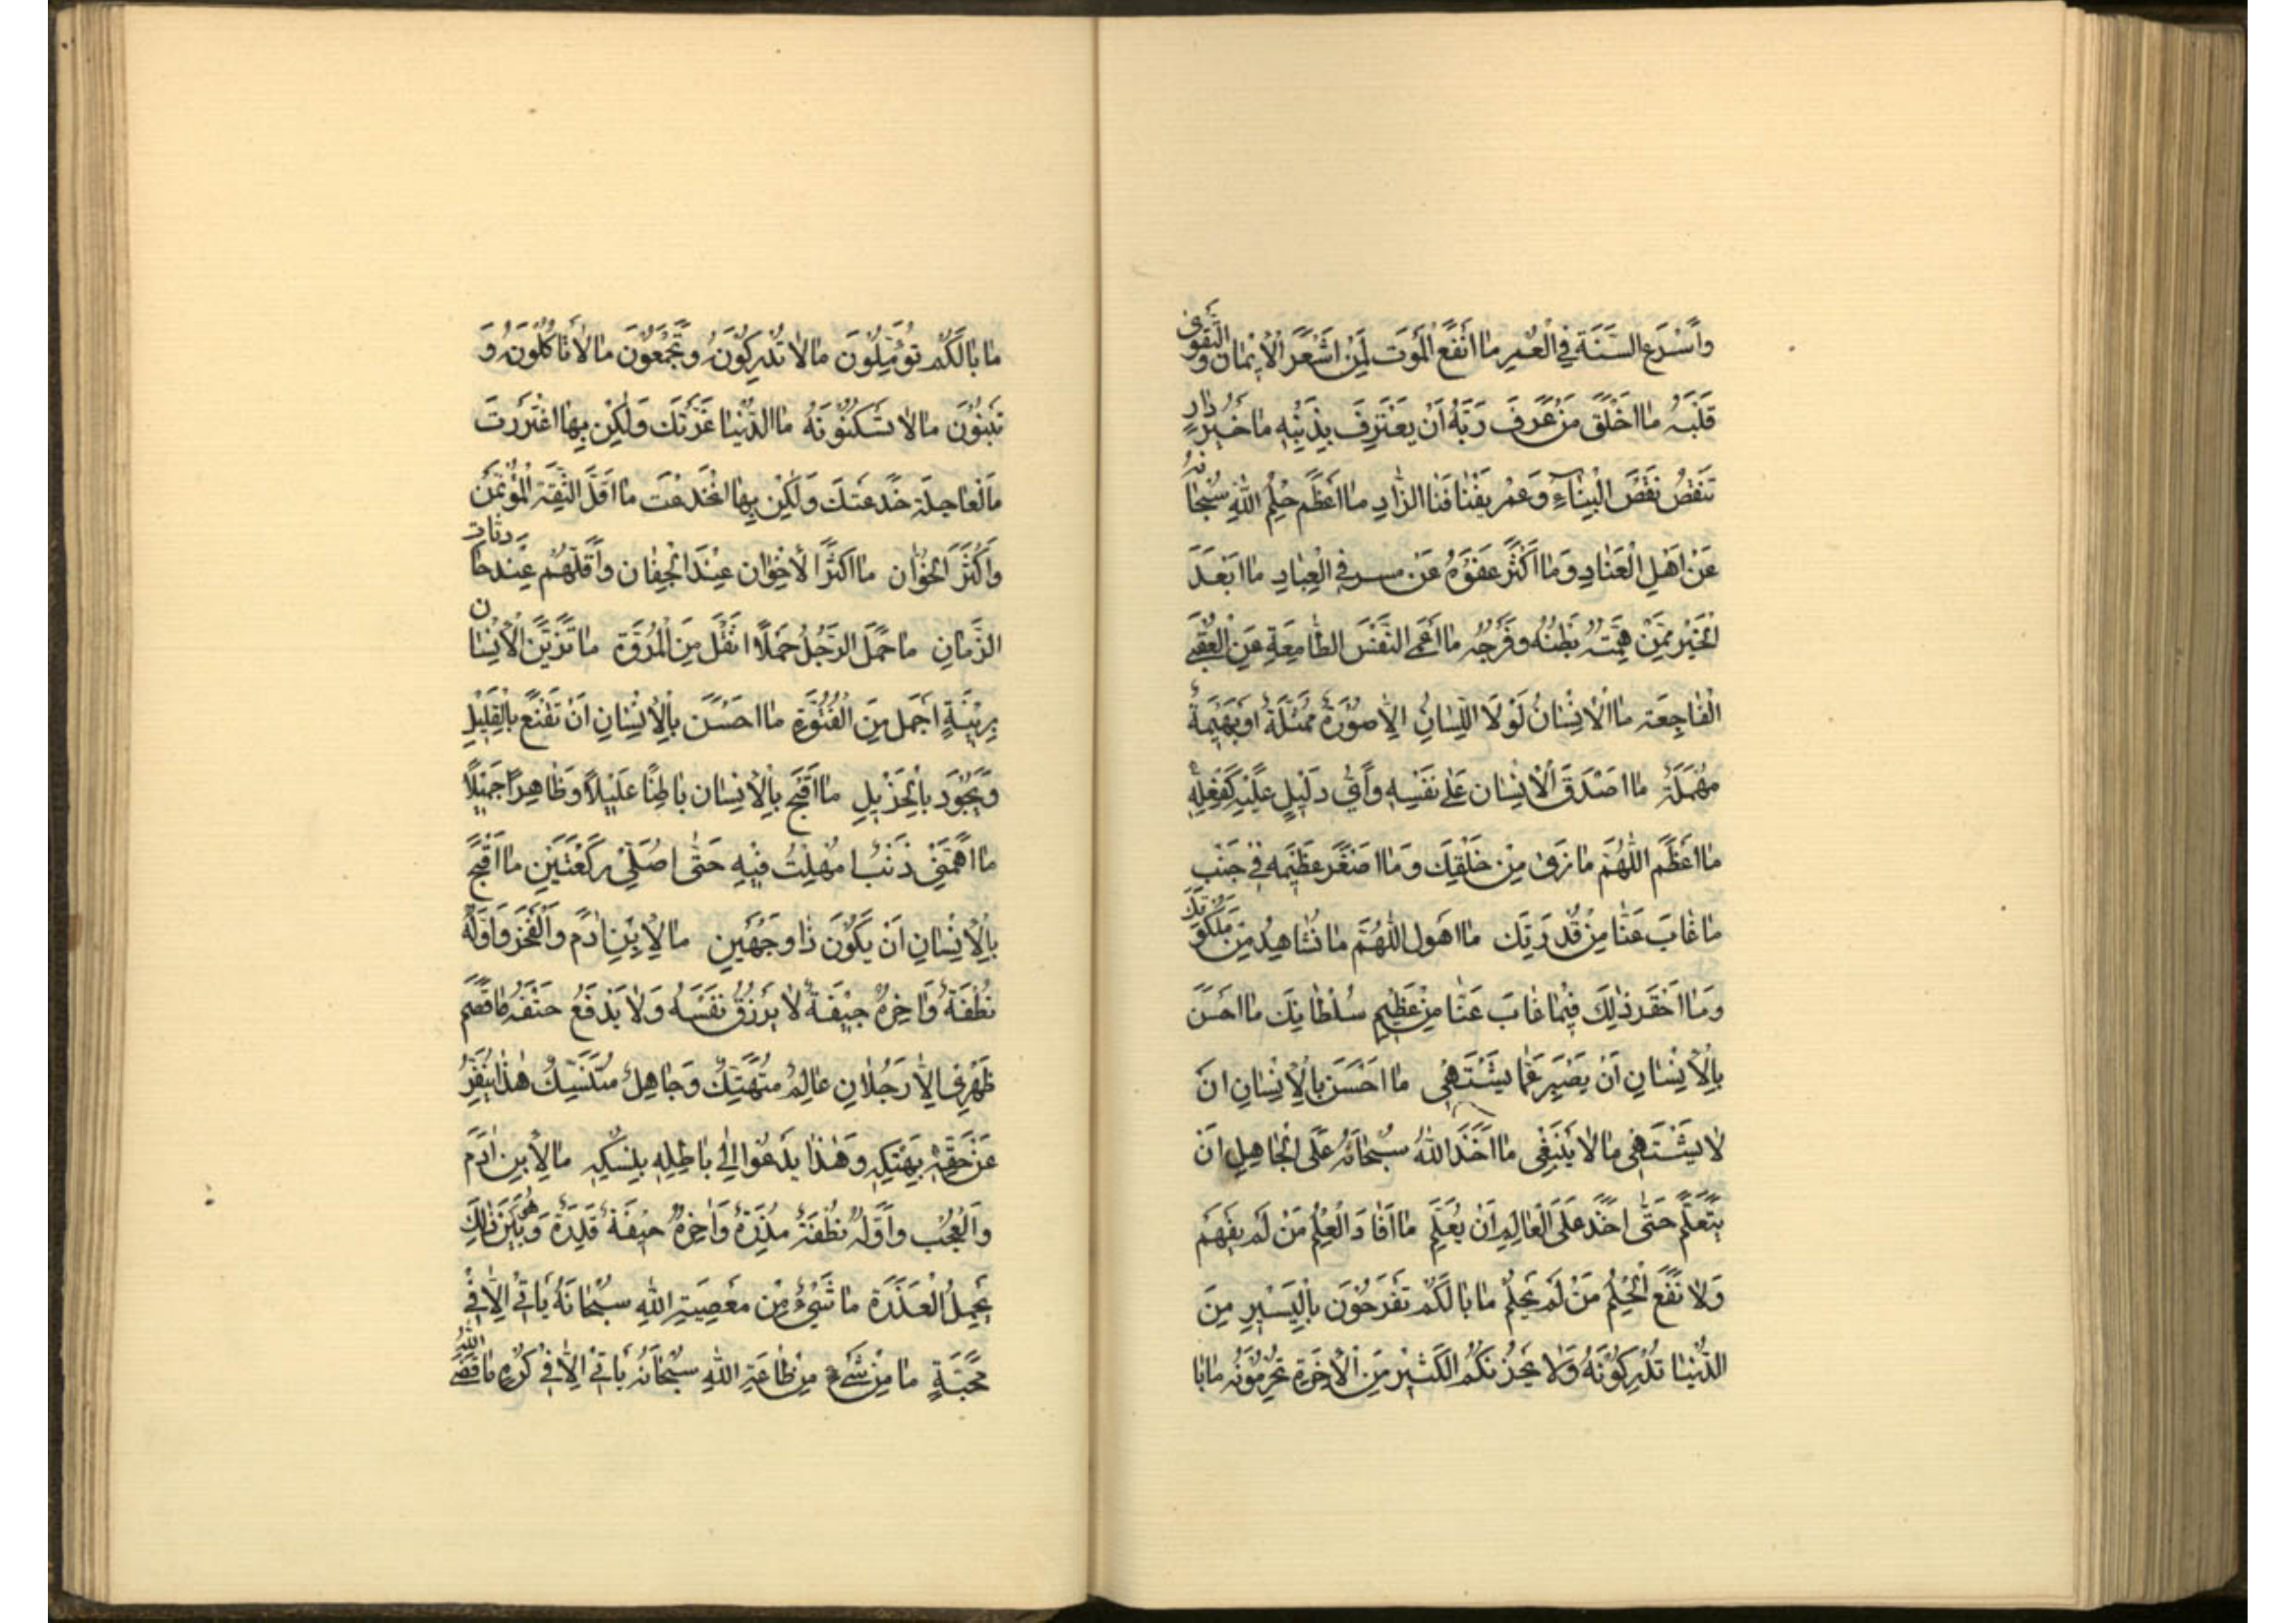 وَاَسْرَعَ السَّنَةَ فِي الْعُمْرِ مٰا اَنْفَعَ الْمَوْتَ لِمَنْ اَشْعَرَ الْاِيْمٰانَ وَ التَّقْوىٰ
قَلْبَهُ مٰا اَخْلَقَ مَنْ عَرَفَ رَبَّهُ اَنْ يَعْتَرِفَ بِذَنْبِهِ مٰا خَيْرُ دٰارٍ
تَنْقُضُ نَقْضَ الْبِنٰاءِ وَعُمْرٍ يَفْنٰا فَنٰا الزّٰادِ مٰا اَعْظَمَ حِلْمَ اللّٰهِ سُبْحٰانَهُ
عَنْ اَهْلِ الْعِنٰادِ وَمٰا اَكْثَرَ عَفْوَهُ عَنْ مسرفي الْعِبٰادِ مٰا اَبْعَدَ
الْخَيْرَ مِمَّنْ هِمَّتُهُ بَطْنُهُ وَفَرْجُهُ مٰا اَعْمَى النَّفْسَ الطّٰامِعَةَ عَنِ الْعُقْبَى
الْفٰاجِعَةِ مٰا الْاِنْسٰانُ لَوْلَا اللِّسٰانُ اِلّٰا صُوْرَةٌ مُمَثَّلَةٌ اَوْ بَهِيْمَةٌ
مُهْمَلَةٌ مٰا اَصْدَقَ الْاِنْسٰانَ عَلىٰ نَفْسِهِ وَاَيُّ دَلِيْلٍ عَلَيْهِ كَفِعْلِهِ
مٰا اَعْظَمَ اللّٰهُمَّ مٰا نَرىٰ مِنْ خَلْقِكَ وَمٰا اَصْغَرَ عَظِيْمَهُ فِيْ جَنْبِ
مٰا غٰابَ عَنّٰا مِنْ قُدْرَتِكَ مٰا اَهْوَلَ اللّٰهُمَّ مٰا نُشٰاهِدُ مِنْ مَلَكُوْتِكَ
وَمٰا اَحْقَرَ ذٰلِكَ فِيْمٰا غٰابَ عَنّٰا مِنْ عَظِيْمِ سُلْطٰانِكَ مٰا اَحْسَنَ
بِالْاِنْسٰانِ اَنْ يَصْبِرَ عَمّٰا يَشْتَهِيْ مٰا اَحْسَنَ بِالْاِنْسٰانِ اَنْ
لٰا يَشْتَهِيْ مٰا لٰا يَنْبَغِيْ مٰا اَخَذَ اللّٰهُ سُبْحٰانَهُ عَلَى الْجٰاهِلِ اَنْ
يَتَعَلَّمَ حَتّٰى اَخَذَ عَلَى الْعٰالِمِ اَنْ يُعَلِّمَ مٰا اَفٰادَ الْعِلْمُ مَنْ لَمْ يَفْهَمْ
وَلٰا نَفَعَ الْحِلْمُ مَنْ لَمْ يَحْلُمْ مٰا بٰالُكُمْ تَفْرَحُوْنَ بِالْيَسِيْرِ مِنَ
الدُّنْيٰا تُدْرِكُوْنَهُ وَلٰا يَحْزُنُكُمُ الْكَثِيْرُ مِنَ الْاٰخِرَةِ تُحْرَمُوْنَهُ مٰا بٰا
مٰا بٰالُكُمْ تُؤَمِّلُوْنَ مٰا لٰا تُدْرِكُوْنَهُ وَتَجْمَعُوْنَ مٰا لٰا تَأْكُلُوْنَهُ وَ
تَبْنُوْنَ مٰا لٰا تَسْكُنُوْنَهُ مٰا الدُّنْيٰا غَرَّتْكَ وَلٰكِنْ بِهٰا اغْتَرَرْتَ
مَا لْعٰاجِلَةُ خَدَعَتْكَ وَلٰكِنْ بِهٰا انْخَدَعْتَ مٰا اَقَلَّ الثِّقَةَ الْمُؤْتَمَنَ
وَاَكْثَرَ الْخَوّٰانَ مٰا اَكْثَرَ الْاِخْوٰانَ عِنْدَ الْجِفٰانِ وَاَقَلَّهُمْ عِنْدَ حٰادِثٰاتِ
الزَّمٰانِ مٰا حَمَلَ الرَّجُلُ حَمْلًا اَثْقَلَ مِنَ الْمُرُوَّةِ مٰا تَزَيَّنَ الْاِنْسٰانُ
بِزِيْنَةٍ اَجْمَلَ مِنَ الْفُتُوَّةِ مٰا اَحْسَنَ بِالْاِنْسٰانِ اَنْ يَقْنَعَ بِالْقَلِيْلِ
وَيَجُوْدَ بِالْجَزِيْلِ مٰا اَقْبَحَ بِالْاِنْسٰانِ بٰاطِنًا عَلِيْلًا وَظٰاهِرًا جَمِيْلًا
مٰا اَهَمَّنِيْ ذَنْبٌ اُمْهِلْتُ فِيْهِ حَتّٰى اُصَلِّيَ رَكْعَتَيْنِ مٰا اَقْبَحَ
بِالْاِنْسٰانِ اَنْ يَكُوْنَ ذٰا وَجْهَيْنِ مٰا لِاِبْنِ اٰدَمَ وَالْفَخْرَ وَاَوَّلُهُ
نُطْفَةٌ وَاٰخِرُهُ جِيْفَةٌ لٰا يَرْزُقُ نَفْسَهُ وَلٰا يَدْفَعُ حَتْفَهُ مٰا قَصَمَ
ظَهْرِيْ اِلّٰا رَجُلٰانِ عٰالِمٌ مُتَهَتِّكٌ وَجٰاهِلٌ مُتَنَسِّكٌ هٰذٰا يُنَفِّرُ
عَنْ حَقِّهِ بِهَتْكِهِ وَهٰذٰا يَدْعُوْا اِلىٰ بٰاطِلِهِ بِنُسْكِهِ مٰا لِاِبْنِ اٰدَمَ
وَالْعُجْبَ وَاَوَّلُهُ نُطْفَةٌ مَذِرَةٌ وَاٰخِرُهُ جِيْفَةٌ قَذِرَةٌ وَهُوَ بَيْنَ ذٰلِكَ
يَحْمِلُ الْعَذَرَةَ مٰا شَيْءٌ مِنْ مَعْصِيَةِ اللّٰهِ سُبْحٰانَهُ يَأْتِيْ اِلّٰا فِيْ
مَحَبَّةٍ مٰا مِنْ شَيْءٍ مِنْ طٰاعَةِ اللّٰهِ سُبْحٰانَهُ يَأْتِيْ اِلّٰا فِيْ كُرْهٍ مٰا قَضَى اللّٰهُ